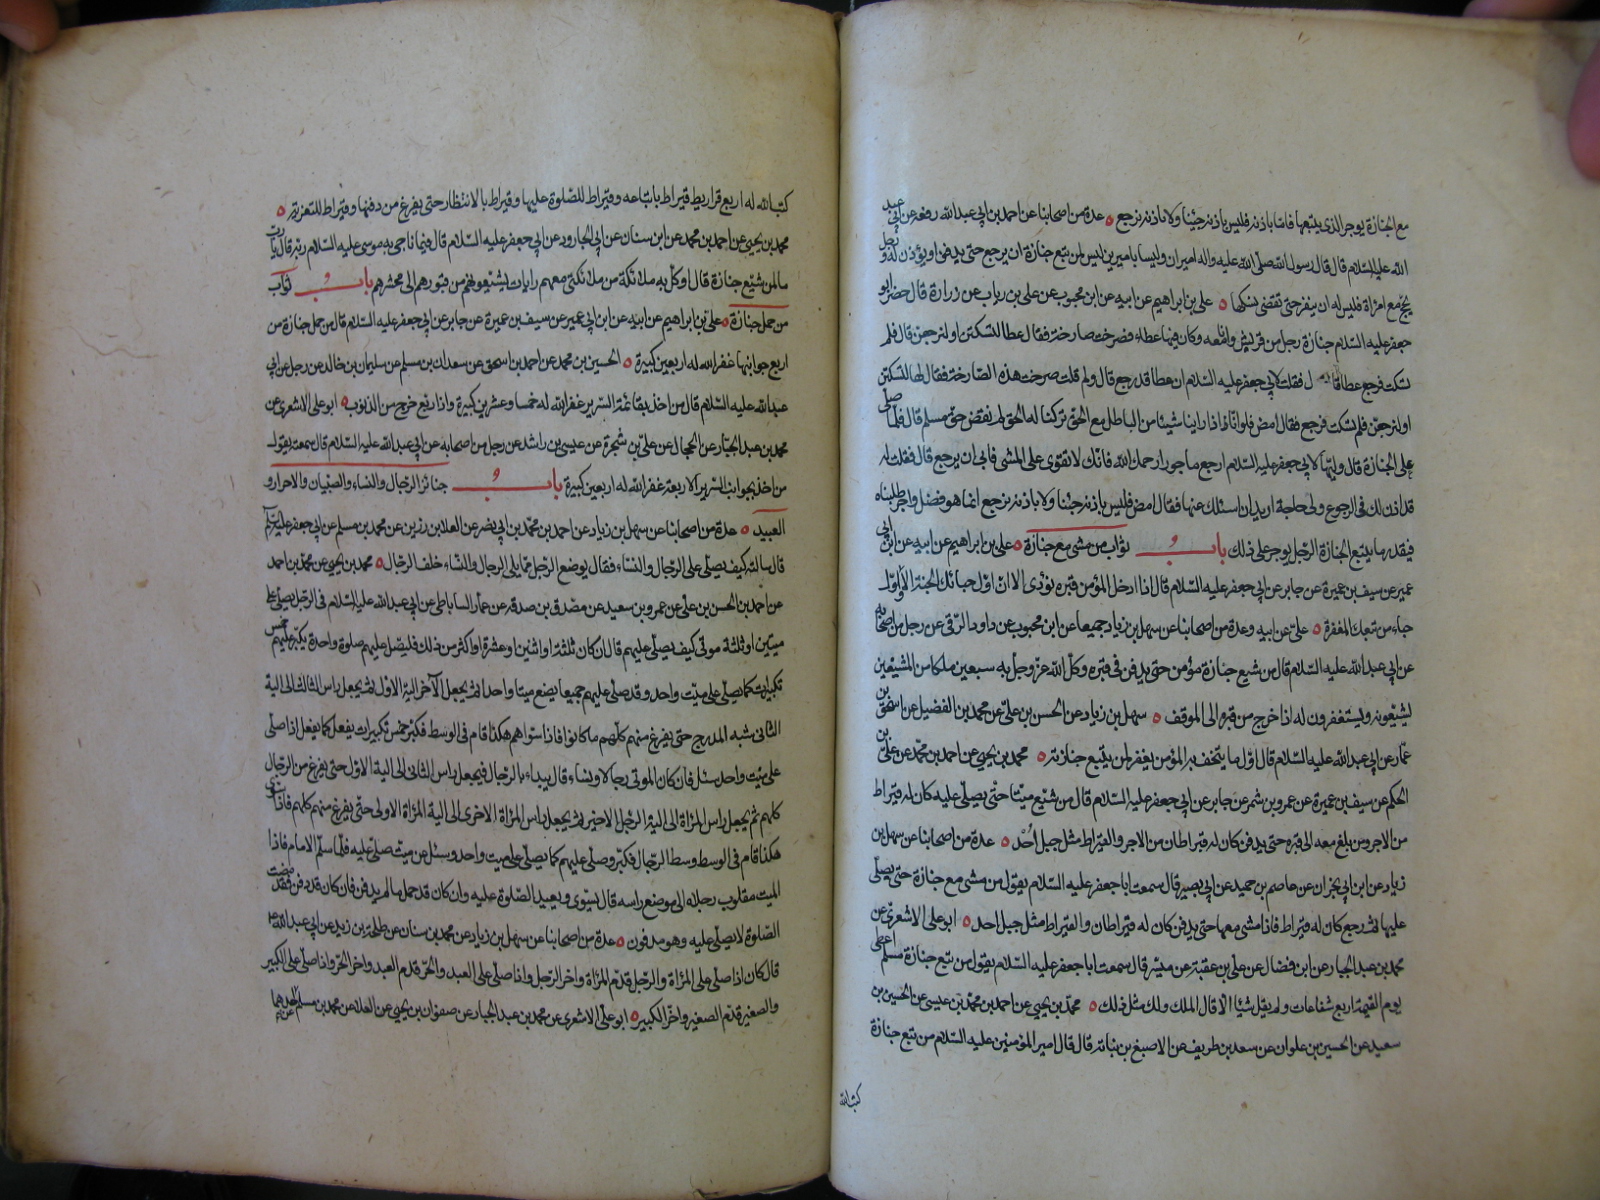 مع الجنازة يوجر الذي يتبعها فاما باذنه فليس باذنه جئنا ولا باذنه نرجع ه عدة من اصحابنا عن احمد بن ابي عبد الله رفعه عن ابي عبد
الله عليه السلام قال قال رسول الله صلى الله عليه واله اميران وليسا باميرين ليس لمن تبع جنازة ان يرجع حتى يدفن او يؤذن له ورجل
يحج مع امرأة فليس له ان ينفر حتى تقضي نسكها ه علي بن ابراهيم عن ابيه عن ابن محبوب عن علي بن رياب عن زرارة قال حضر ابو
جعفر عليه السلام جنازة رجل من قريش وانا معه وكان فيها عطاء فصرخت صارخة فقال عطا لتسكتن او لنرجعن قال فلم
تسكت فرجع عطا قال فقلت لابي جعفر عليه السلام ان عطا قد رجع قال ولم قلت صرخت هذه الصارخة فقال لها لتسكتن
او لنرجعن فلم تسكت فرجع فقال امض فلو انا اذا راينا شيئا من الباطل مع الحق تركنا له الحق لم نقض حق مسلم قال فلما صلى
على الجنازة قال وليها لابي جعفر عليه السلام ارجع ماجورا رحمك الله فانك لا تقوى على المشي فابى ان يرجع قال فقلت له
قد اذن لك في الرجوع ولي حاجة اريد ان اسئلك عنها فقال امض فليس باذنه جئنا ولا باذنه نرجع انما هو فضل واجر طلبناه
فبقدر ما يتبع الجنازة الرجل يوجر على ذلك باب ثواب من مشى مع جنازة ه علي بن ابراهيم عن ابيه عن ابن ابي
عمير عن سيف بن عميرة عن جابر عن ابي جعفر عليه السلام قال اذا ادخل المؤمن قبره نودي الا ان اول حبائك الجنة الا واول
حباء من تبعك المغفرة ه علي عن ابيه وعدة من اصحابنا عن سهل بن زياد جميعا عن ابن محبوب عن داود الرقي عن رجل من اصحابه
عن ابي عبد الله عليه السلام قال من شيع جنازة مؤمن حتى يدفن في قبره وكل الله عز وجل به سبعين ملكا من المشيعين
يشيعونه ويستغفرون له اذا خرج من قبره الى الموقف ه سهل بن زياد عن الحسن بن علي عن محمد بن الفضيل عن اسحق بن
عمار عن ابي عبد الله عليه السلام قال اول ما يتحف به المؤمن يغفر لمن يتبع جنازته ه محمد بن يحيى عن احمد بن محمد عن علي بن
الحكم عن سيف بن عميرة عن عمرو بن شمر عن جابر عن ابي جعفر عليه السلام قال من شيع ميتا حتى يصلي عليه كان له قيراط
من الاجر ومن بلغ معه الى قبره حتى يدفن كان له قيراطان من الاجر والقيراط مثل جبل أحد ه عدة من اصحابنا عن سهل بن
زياد عن ابن ابي نجران عن عاصم بن حميد عن ابي بصير قال سمعت ابا جعفر عليه السلام يقول من مشى مع جنازة حتى يصلي
عليها ثم رجع كان له قيراط فاذا مشى معها حتى يدفن كان له قيراطان والقيراط مثل جبل احد ه ابو علي الاشعري عن
محمد بن عبد الجبار عن ابن فضال عن علي بن عقبة عن ميسر قال سمعت ابا جعفر عليه السلام يقول من تبع جنازة مسلم اعطى
يوم القيمة اربع شفاعات ولم يقل شيئا الا قال الملك ولك مثل ذلك ه محمد بن يحيى عن احمد بن محمد بن عيسى عن الحسين بن
سعيد عن الحسين بن علوان عن سعد بن طريف عن الاصبغ بن نباته قال قال امير المؤمنين عليه السلام من تبع جنازة
كتب الله
كتب الله له اربع قراريط قيراط باتباعه وقيراط للصلوة عليها وقيراط بالانتظار حتى يفرغ من دفنها وقيراط للتعزية ه
محمد بن يحيى عن احمد بن محمد عن ابن سنان عن ابي الجارود عن ابي جعفر عليه السلام قال فيما ناجى به موسى عليه السلام ربه قال يا رب
ما لمن شيع جنازة قال اوكل به ملائكة من ملائكتي معهم رايات يشيعونهم من قبورهم الى محشرهم باب ثواب
من حمل جنازة ه علي بن ابراهيم عن ابيه عن ابن ابي عمير عن سيف بن عميرة عن جابر عن ابي جعفر عليه السلام قال من حمل جنازة من
اربع جوانبها غفر الله له اربعين كبيرة ه الحسين بن محمد عن احمد بن اسحق عن سعدان بن مسلم عن سليمان بن خالد عن رجل عن ابي
عبد الله عليه السلام قال من اخذ بقائمة السرير غفر الله له خمسا وعشرين كبيرة واذا ربع خرج من الذنوب ه ابو علي الاشعري عن
محمد بن عبد الجبار عن الحجال عن علي بن شجرة عن عيسى بن راشد عن رجل من اصحابه عن ابي عبد الله عليه السلام قال سمعته يقول
من اخذ بجوانب السرير الاربعة غفر الله له اربعين كبيرة باب جنائز الرجال والنساء والصبيان والاحرار و
العبيد ه عدة من اصحابنا عن سهل بن زياد عن احمد بن محمد بن ابي نصر عن العلا بن رزين عن محمد بن مسلم عن ابي جعفر عليه السلم
قال سالته كيف يصلي على الرجال والنساء فقال يوضع الرجل مما يلي الرجال والنساء خلف الرجال ه محمد بن يحيى عن محمد بن احمد
عن احمد بن الحسن بن علي عن عمرو بن سعيد عن مصدق بن صدقة عن عمار الساباطي عن ابي عبد الله عليه السلام في الرجل يصلي على
ميتين او ثلثة موتى كيف يصلي عليهم قال ان كان ثلثة او اثنين او عشرة او اكثر من ذلك فليصل عليهم صلوة واحدة يكبر عليهم خمس
تكبيرات كما يصلي على ميت واحد وقد صلى عليهم جميعا يضع ميتا واحدا ثم يجعل الآخر الية الاول ثم يجعل راس الثالث الى الية
الثاني شبه المدرج حتى يفرغ منهم كلهم ما كانوا فاذا سواهم هكذا قام في الوسط فكبر خمس تكبيرات يفعل كما يفعل اذا صلى
على ميت واحد سئل فان كان الموتى رجالا ونساء قال يبداء بالرجال فيجعل راس الثاني الى الية الاول حتى يفرغ من الرجال
كلهم ثم يجعل راس المرأة الى الية الرجل الاخير ثم يجعل راس المرأة الاخرى الى الية المرأة الاولى حتى يفرغ منهم كلهم فاذا سوى
هكذا قام في الوسط وسط الرجال فكبر وصلى عليهم كما يصلي على ميت واحد وسئل عن ميت صلى عليه فلما سلم الامام فاذا
الميت مقلوب رجلاه الى موضع راسه قال يسوى ويعيد الصلوة عليه وان كان قد حمل ما لم يدفن فان كان قد دفن فقد مضت
الصلوة لا يصلى عليه وهو مدفون ه عدة من اصحابنا عن سهل بن زياد عن محمد بن سنان عن طلحة بن زيد عن ابي عبد الله
قال كان اذا صلى على المرأة والرجل قدم المرأة واخر الرجل واذا صلى على العبد والحر قدم العبد واخر الحر واذا صلى على الكبير
والصغير قدم الصغير واخر الكبير ه ابو علي الاشعري عن محمد بن عبد الجبار عن صفوان بن يحيى عن العلا عن محمد بن مسلم عن احدهما